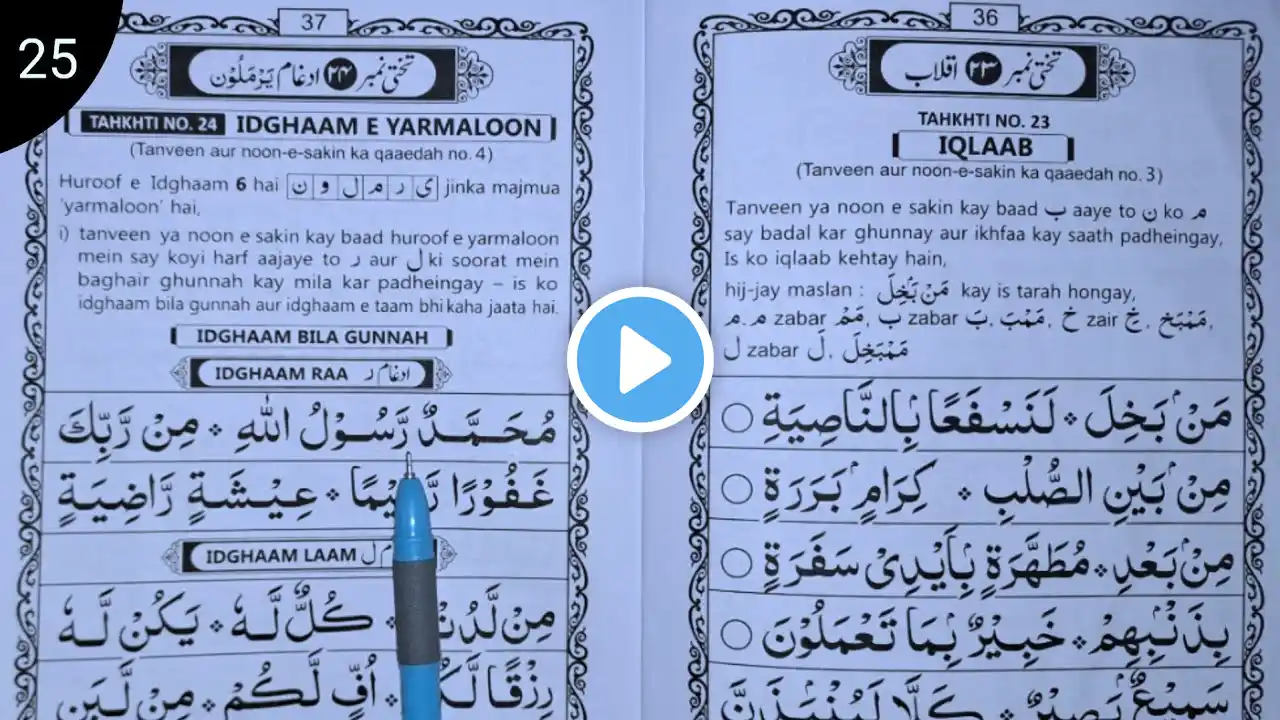 25
37
تختی نمبر ۲۴ ادغام یَرْمَلُوْن
TAHKHTI NO. 24 IDGHAAM E YARMALOON
(Tanveen aur noon-e-sakin ka qaaedah no. 4)
Huroof e Idghaam 6 hai ی ر م ل و ن jinka majmua
‘yarmaloon’ hai,
i) tanveen ya noon e sakin kay baad huroof e yarmaloon
mein say koyi harf aajaye to ر aur ل ki soorat mein
baghair ghunnah kay mila kar padheingay – is ko
idghaam bila gunnah aur idghaam e taam bhi kaha jaata hai.
IDGHAAM BILA GUNNAH
IDGHAAM RAA ادغام ر
مُحَمَّدٌ رَّسُوْلُ اللّٰهِ * مِنْ رَّبِّكَ
غَفُوْرًا * عِيْشَةٍ رَّاضِيَةٍ
IDGHAAM LAAM ل
مِنْ لَّدُنْ * كُلٌّ لَّهٗ * يَكُنْ لَّهٗ
رِزْقًا * اُفٍّ لَّكُمْ * مِنْ لَّبَنٍ
36
تختی نمبر ۲۳ اقلاب
TAHKHTI NO. 23
IQLAAB
(Tanveen aur noon-e-sakin ka qaaedah no. 3)
Tanveen ya noon e sakin kay baad ب aaye to ن ko م
say badal kar ghunnay aur ikhfaa kay saath padheingay,
Is ko iqlaab kehtay hain,
hij-jay maslan : مَنْۢ بَخِلَ kay is tarah hongay,
م.م zabar مَمْ, ب zabar بَ, مَمْبَ, خ zair خِ, مَمْبَخِ,
ل zabar لَ, مَمْبَخِلَ
مَنْۢ بَخِلَ * لَنَسْفَعًاۢ بِالنَّاصِيَةِ
مِنْۢ بَيْنِ الصُّلْبِ * كِرَامٍۢ بَرَرَةٍ
مِنْۢ بَعْدِ * مُطَهَّرَةٍۢ بِاَيْدِىْ سَفَرَةٍ
بِذَنْۢبِهِمْ * خَبِيْرٌۢ بِمَا تَعْمَلُوْنَ
سَمِيْعٌۢ بَصِيْرٌ * كَلَّا لَيُنْۢبَذَنَّ